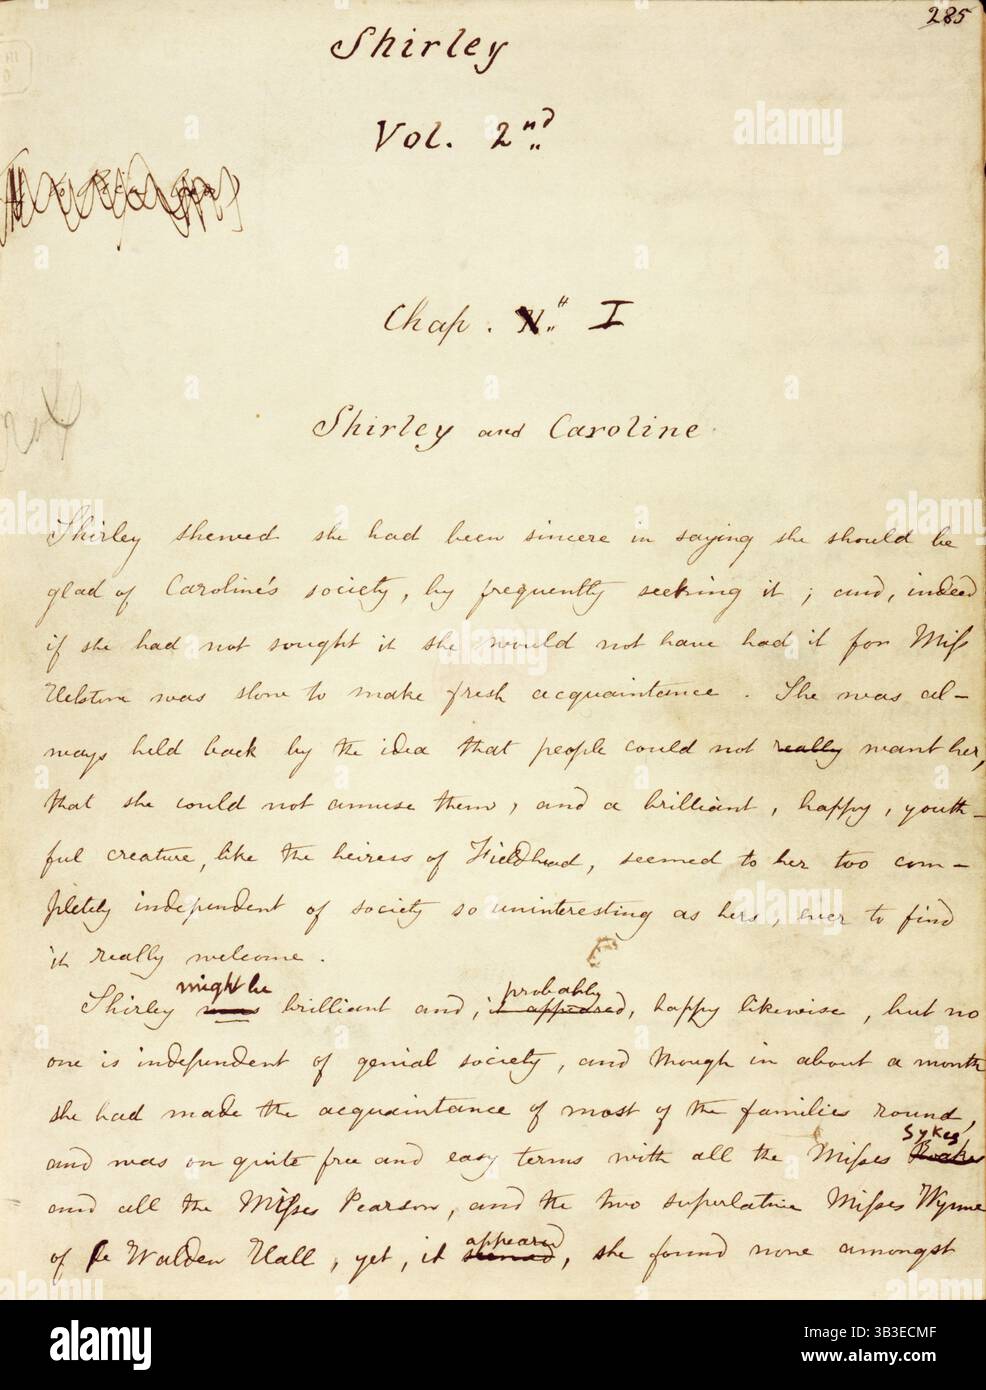 285
Shirley
Vol. 2nd
Chap. I
Shirley and Caroline
Shirley shewed she had been sincere in saying she should be
glad of Caroline's society, by frequently seeking it ; and, indeed
if she had not sought it she would not have had it for Miss
Helstone was slow to make fresh acquaintance . She was al-
ways held back by the idea that people could not really want her,
that she could not amuse them, and a brilliant, happy, youth-
ful creature, like the heiress of Fieldhead, seemed to her too com-
pletely independent of society so uninteresting as hers, ever to find
it really welcome .
might be probably
Shirley was brilliant and, it appeared, happy likewise, but no
one is independent of genial society, and though in about a month
she had made the acquaintance of most of the families round,
Sykes
and was on quite free and easy terms with all the Misses
and all the Misses Pearson, and the two superlative Misses Wynne
appeared
of De Walden Hall, yet, it seemed, she found none amongst
alamy
Image ID: 2B3ECMF
www.alamy.com